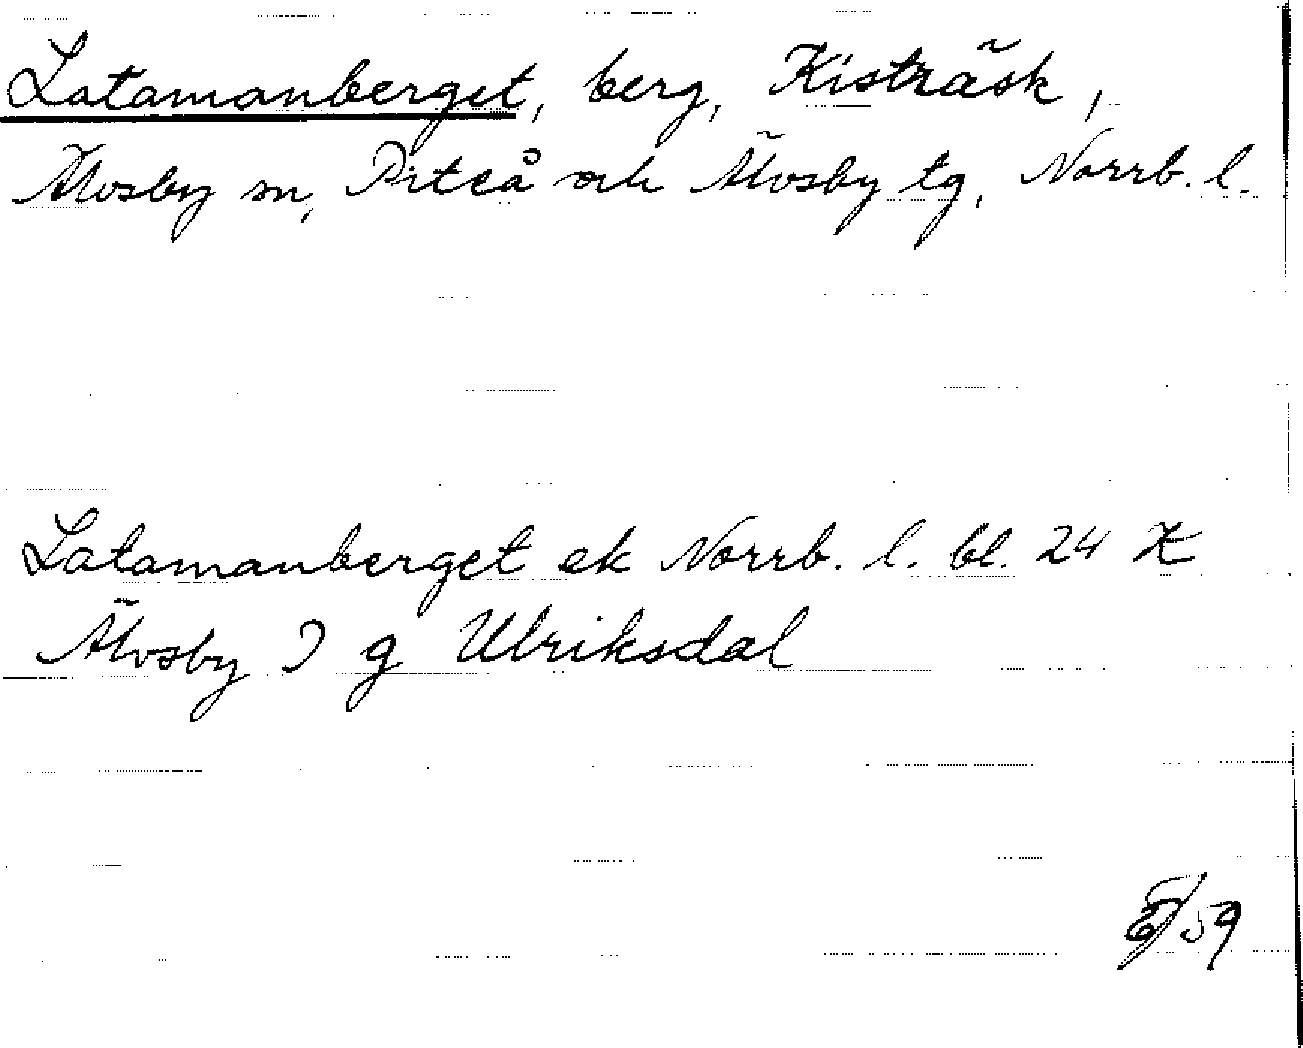 Latamanberget, berg, Kisträsk,
Älvsby sn, Piteå och Älvsby tg, Norrb. l.
Latamanberget ek Norrb. l. bl. 24 X
Älvsby J g Ulriksdal
/59